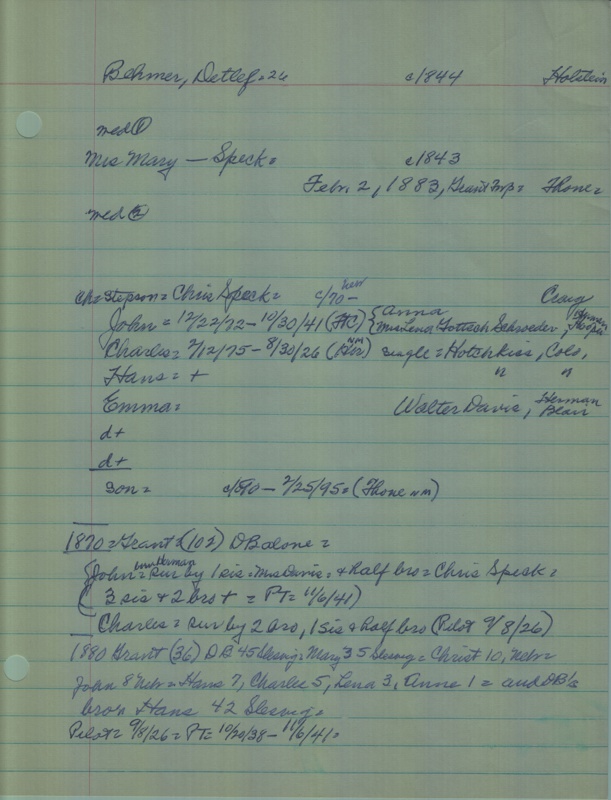 Behmer, Detlef = 26 c/1844 Holstein
med ①
Mrs Mary — Speck = c/1843
Febr. 2, 1883, Grant Twp = Thone =
med ②
ch = Stepson = Chris Speck = c/70 — Craig
John = 12/22/72 — 10/30/41 (HC) { Anna
Mrs Lena Gottsch Schroeder, Herman
Charles = 2/12/75 — 8/30/26 (NM) single = Hotchkiss, Colo,
Hans = + " "
Emma = Walter Davis, Herman Blair
d+
d+
son = c/80 — 2/25/95 = (Thone NM)
1870 = Grant (102) DB alone =
{ John = sur by 1 sis = Mrs Davis = + half bro = Chris Speck =
( 3 sis + 2 bro + = PT = 11/6/41)
Charles = sur by 2 bro, 1 sis + half bro (Pilot 9/8/26)
1880 Grant (36) DB 45 Slesvig = Mary 35 Slesvig = Christ 10, Nebr =
John 8 Nebr = Hans 7, Charles 5, Lena 3, Anne 1 = and DB's
bro = Hans 42 Slesvig =
Pilot = 9/8/26 = PT = 10/20/38 — 11/6/41 =